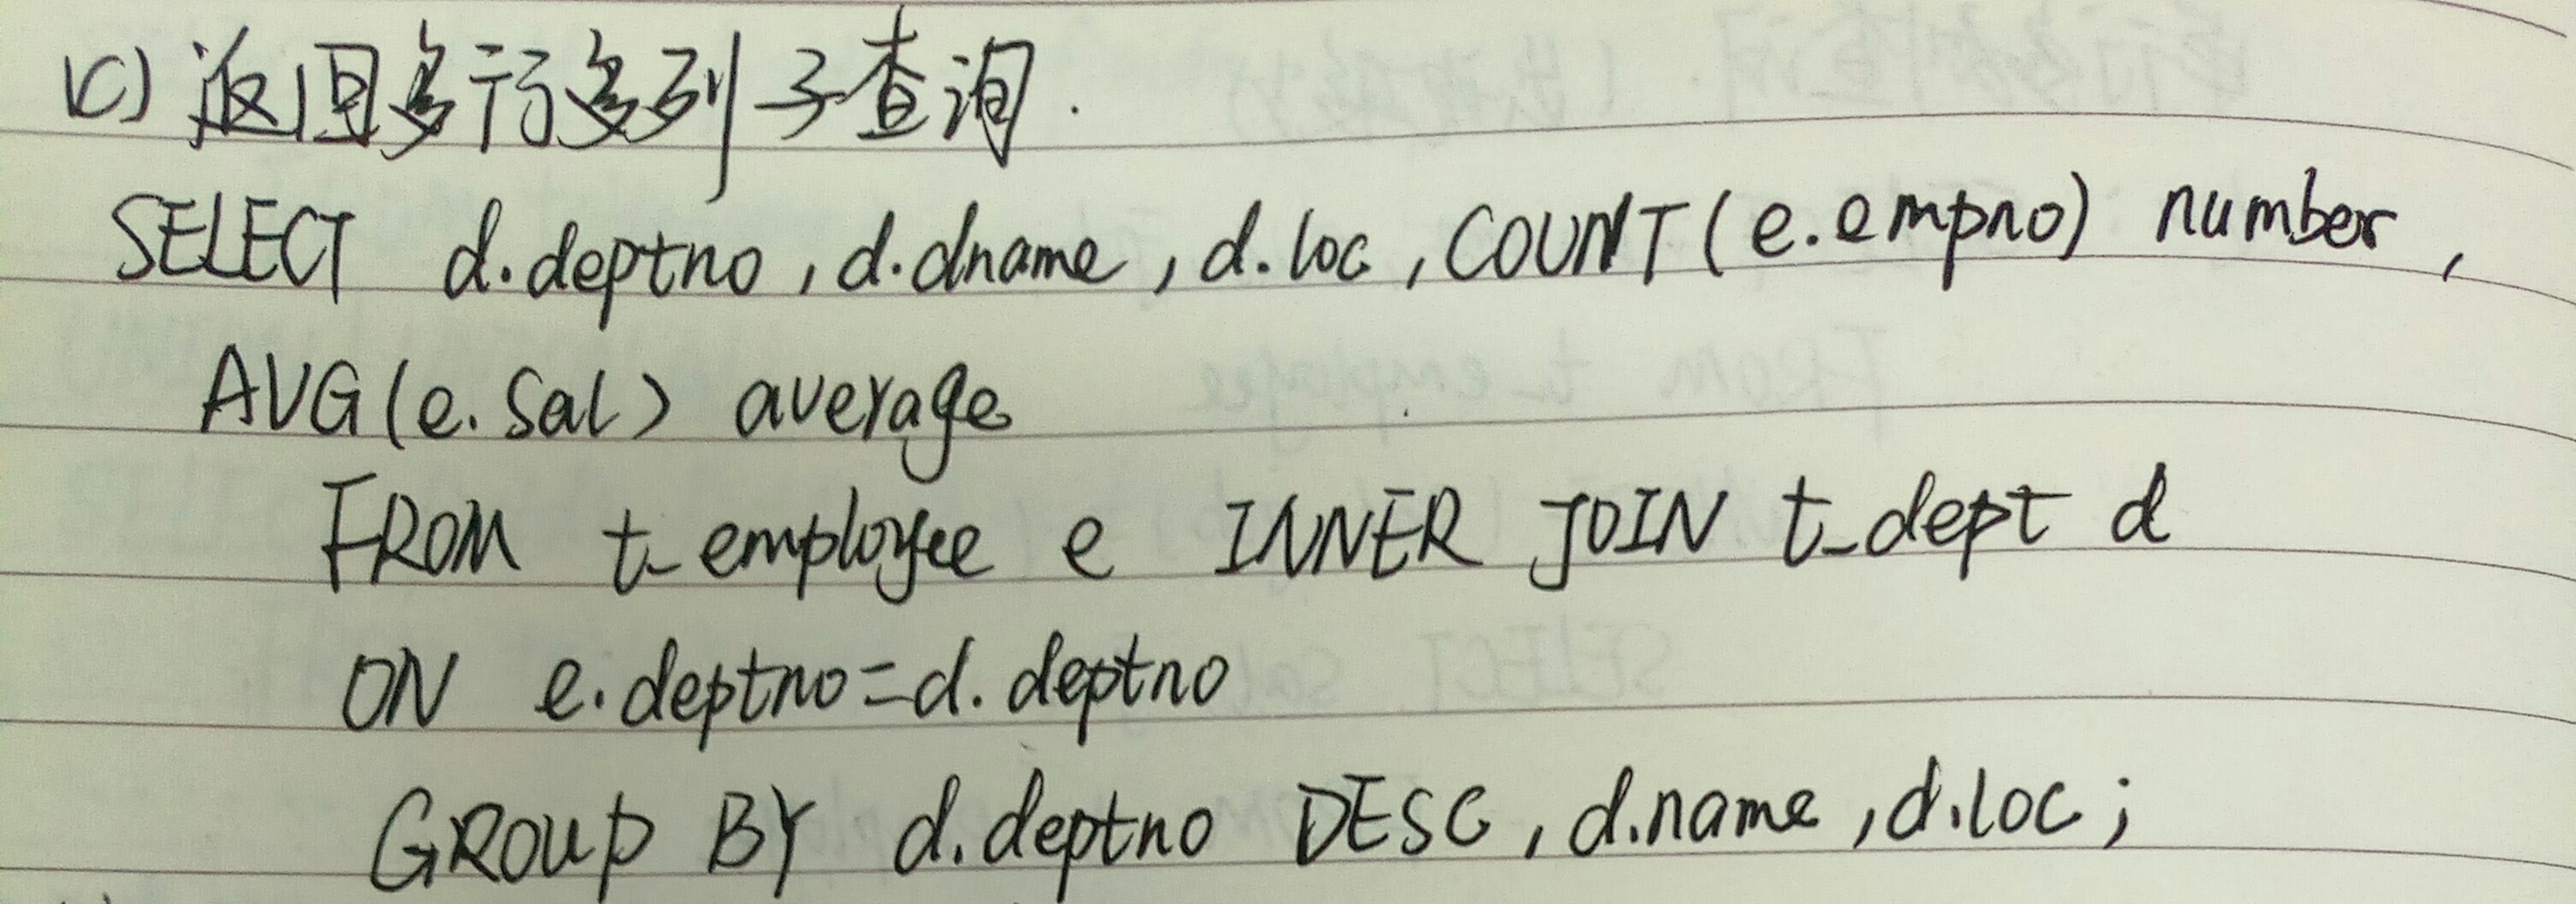 (C) 返回多行多列子查询.
SELECT d.deptno, d.dname, d.loc, COUNT(e.empno) number,
AVG(e.sal) average
FROM t_employee e INNER JOIN t_dept d
ON e.deptno=d.deptno
GROUP BY d.deptno DESC, d.name, d.loc;